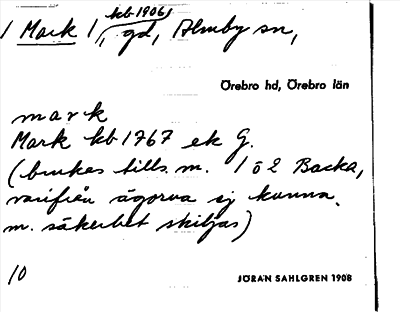 kb 1906,
/ Mark /, gd, Almby sn,
Örebro hd, Örebro län
mark
Mark kb 1767 ek G.
(brukes tills. m. 1 o 2 Backa,
varifrån ägorna ej kunna
m. säkerhet skiljas)
10
JÖRAN SAHLGREN 1908